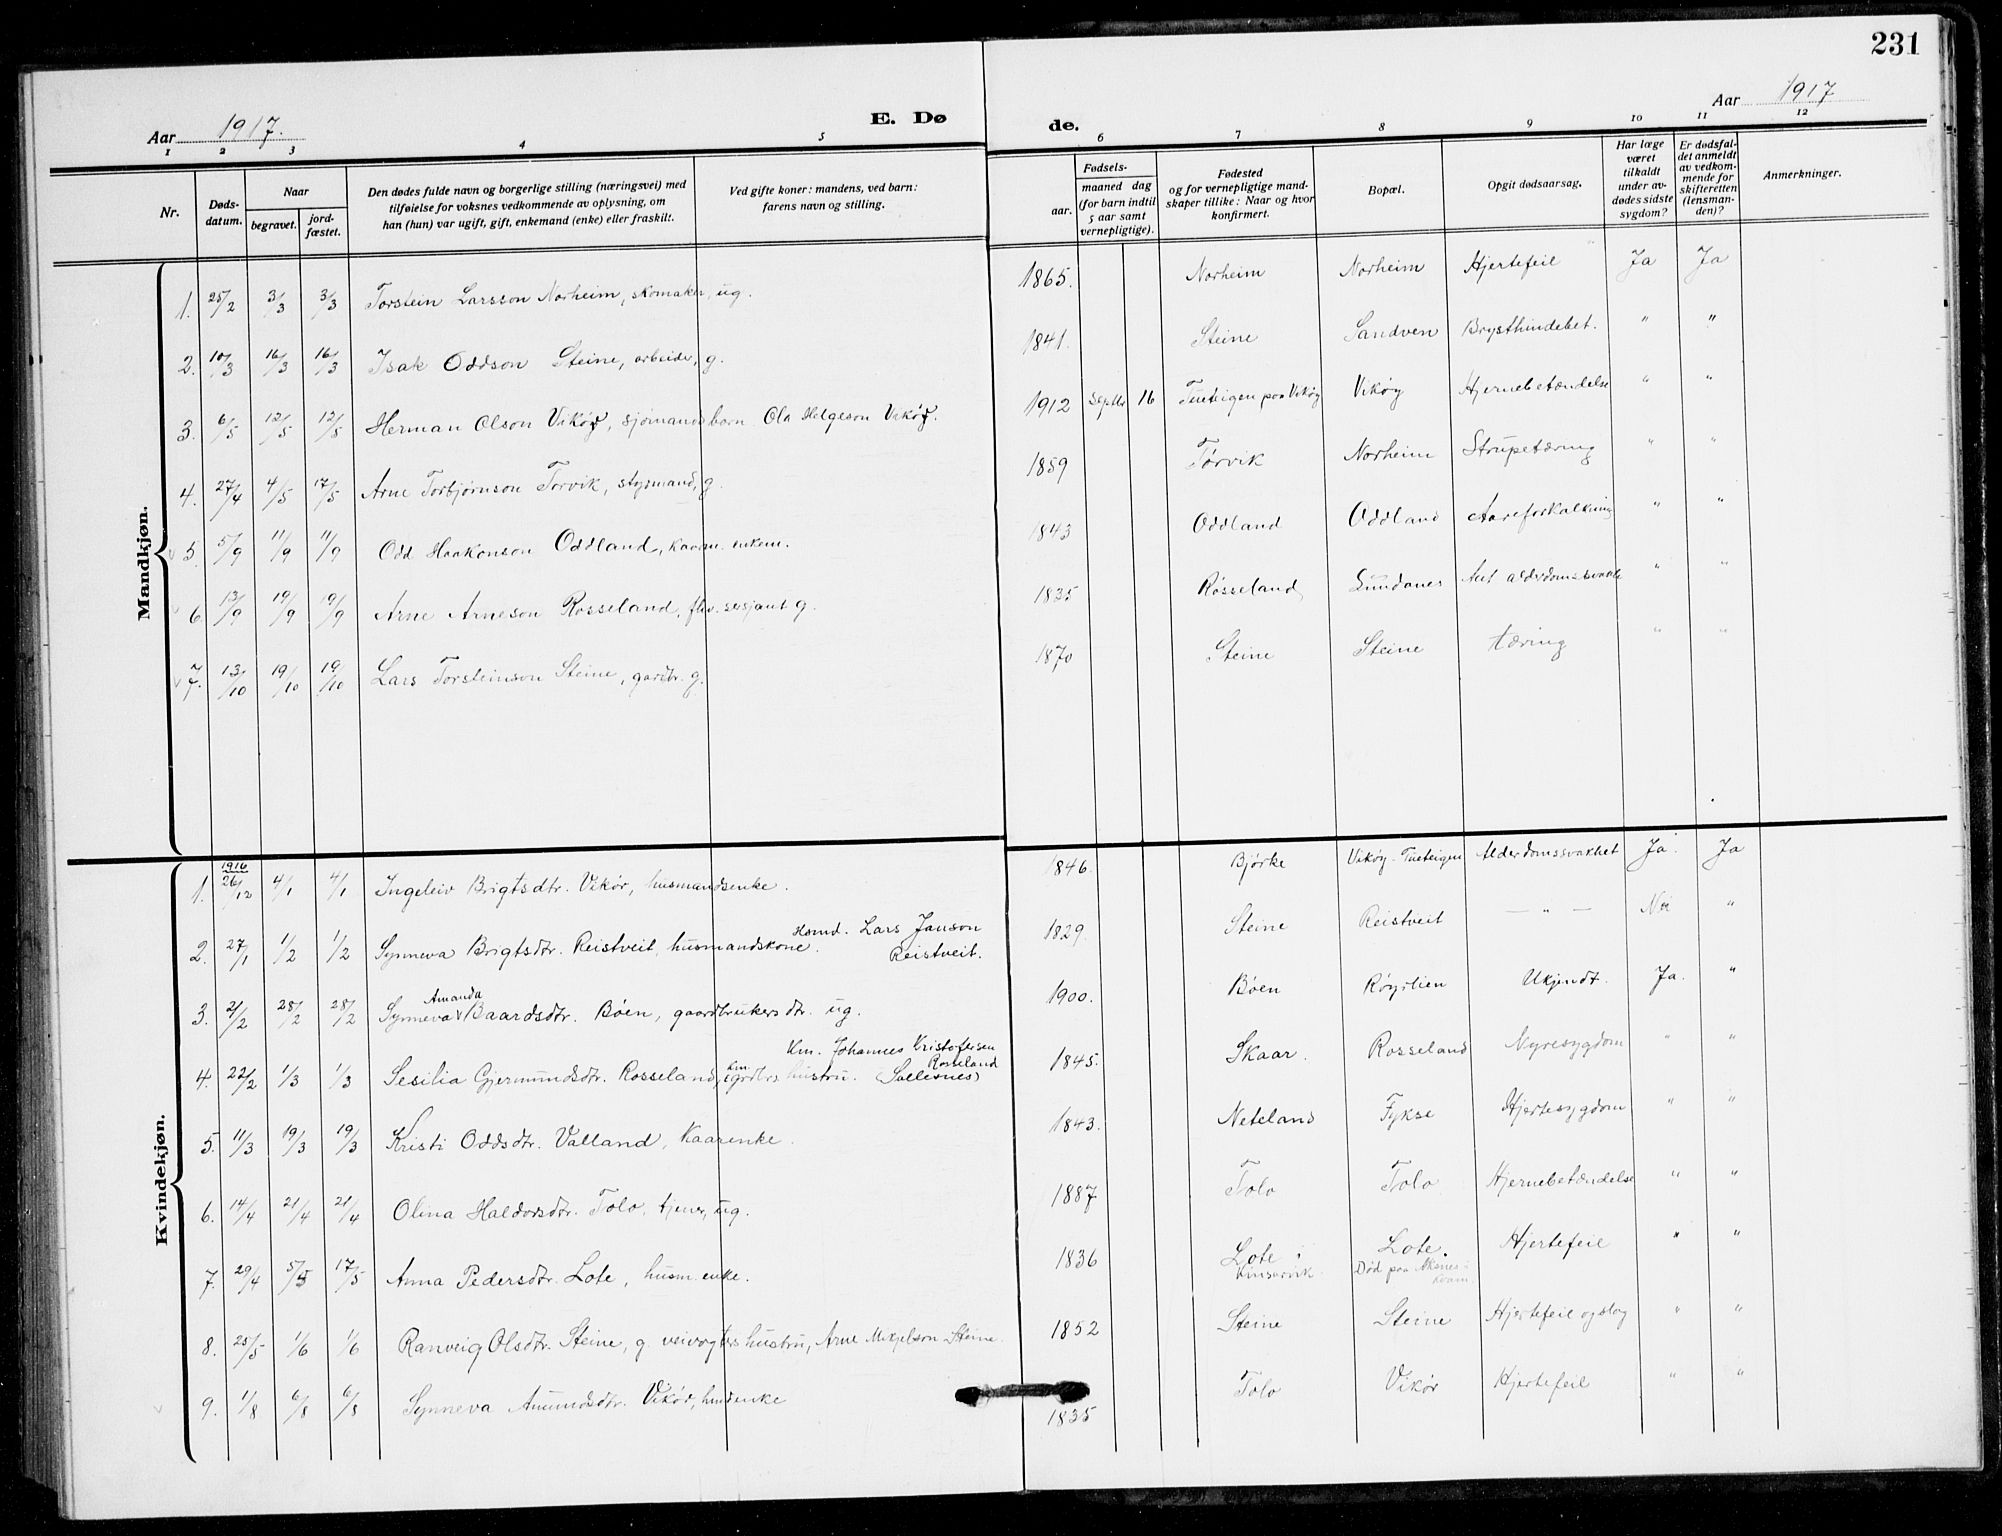 231
Aar 1917.
E. Dø
de.
Aar 1917
1 2 3 4 5 6 7 8 9 10 11 12
Nr.
Døds-
datum.
Naar
begravet.
jord-
fæstet.
Den dødes fulde navn og borgerlige stilling (næringsvei) med
tilføielse for voksnes vedkommende av oplysning, om
han (hun) var ugift, gift, enkemand (enke) eller fraskilt.
Ved gifte koner: mandens, ved barn:
farens navn og stilling.
Fødsels-
aar.
maaned dag
(for barn indtil
5 aar samt
vernepligtige).
Fødested
og for vernepligtige mand-
skaper tillike: Naar og hvor
konfirmert.
Bopæl.
Opgit dødsaarsag.
Har læge
været
tilkaldt
under av-
dødes sidste
sygdom?
Er dødsfal-
det anmeldt
av vedkom-
mende for
skifteretten
(lensman-
den)?
Anmerkninger.
Mandkjøn.
1. 25/2 3/3 3/3 Torstein Larsson Norheim, skomaker, ug. 1865. Norheim Norheim Hjertefeil Ja Ja
2. 10/3 16/3 16/3 Isak Oddson Steine, arbeider, g. 1841. Steine Sandven Brysthindebet. " "
3. 6/5 12/5 12/5 Herman Olson Vikør, sjømands barn Ola Helgeson Vikør. 1912 septbr 16 Tueteigen paa Vikøy Vikøy Hjernebetændelse " "
4. 27/4 4/5 17/5 Arne Torbjørnson Torvik, styrmand, g. 1859 Tørvik Norheim Strupetæring " "
5. 5/9 11/9 11/9 Odd Haakonson Oddland, kaarm. enkem. 1843 Oddland Oddland Aareforkalkning " "
6 13/9 19/9 19/9 Arne Arneson Rosseland, fhv. sersjant g. 1835 Røsseland Sundanes Ant alderdomssvakhet " "
7. 13/10 19/10 19/10 Lars Torsteinson Steine, gardbr. g. 1870 Steine Steine tæring " "
Kvindekjøn.
1916
1. 26/12 4/1 4/1 Ingeleiv Brigtsdtr. Vikør, husmandsenke. 1846. Bjørke Vikøy-Tueteigen Alderdomssvakhet Ja. Ja
2. 27/1 1/2 1/2 Synneva Brigtsdtr. Reistveit, husmandskone. Husmd. Lars Janson Reistveit. 1829. Steine Reistveit — " — Nei "
3. 21/2 28/2 28/2 Synneva Amanda Baardsdtr. Bøen, gaardbrukers dtr. ug. 1900. Bøen Røyrlien Ukjendt. Ja. "
4. 22/2 1/3 1/3 Sesilia Gjermundsdtr. Rosseland, km. grdbrs hustru. Km. Johannes Kristofersen Rosseland (Sallesnes) 1845. Skaar. Rosseland Nyresygdom " "
5. 11/3 19/3 19/3 Kristi Oddsdtr. Valland, Kaarenke. 1843. Neteland Fykse Hjertesygdom " "
6. 14/4 21/4 21/4 Olina Haldorsdtr. Tolo, tjener, ug. 1887 Tolo Tolo Hjernebetændelse " "
7. 29/4 5/5 17/5 Anna Pedersdtr. Lote, husm. enke. 1836 Lote i Kinsarvik. Lote. Død paa Aksnes i Kvam. Hjertefeil " "
8. 25/5 1/6 1/6 Ranveig Olsdtr. Steine, g. veivogters hustru, Arne Mikjelson Steine. 1852 Steine Steine Hjertefeil og slag " "
9. 1/8 6/8 6/8 Synneva Amundsdtr. Vikør, 1835 Tolo Vikør Hjertefeil " "